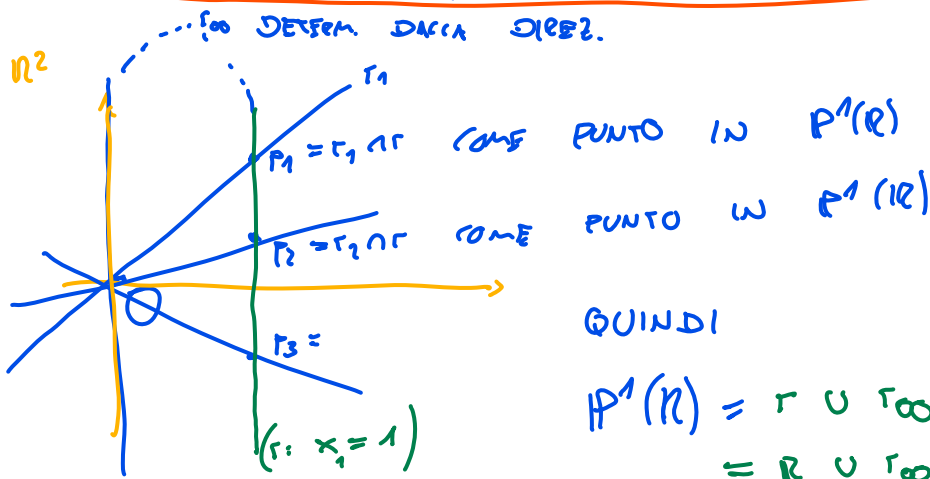 r∞ DETERM. DALLA DIREZ.
R²
r₁
P₁ = r₁ ∩ r COME PUNTO IN P¹(R)
P₂ = r₂ ∩ r COME PUNTO IN P¹(R)
O
P₃ =
QUINDI
P¹(R) = r ∪ r∞
(r: x₁ = 1)
= R ∪ r∞